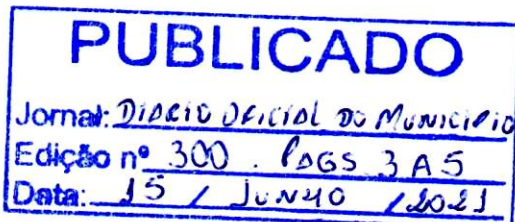 PUBLICADO
Jornal: DIÁRIO OFICIAL DO MUNICIPIO
Edição nº 300 . PAGS 3 A 5
Data: 15 / JUNHO / 2021